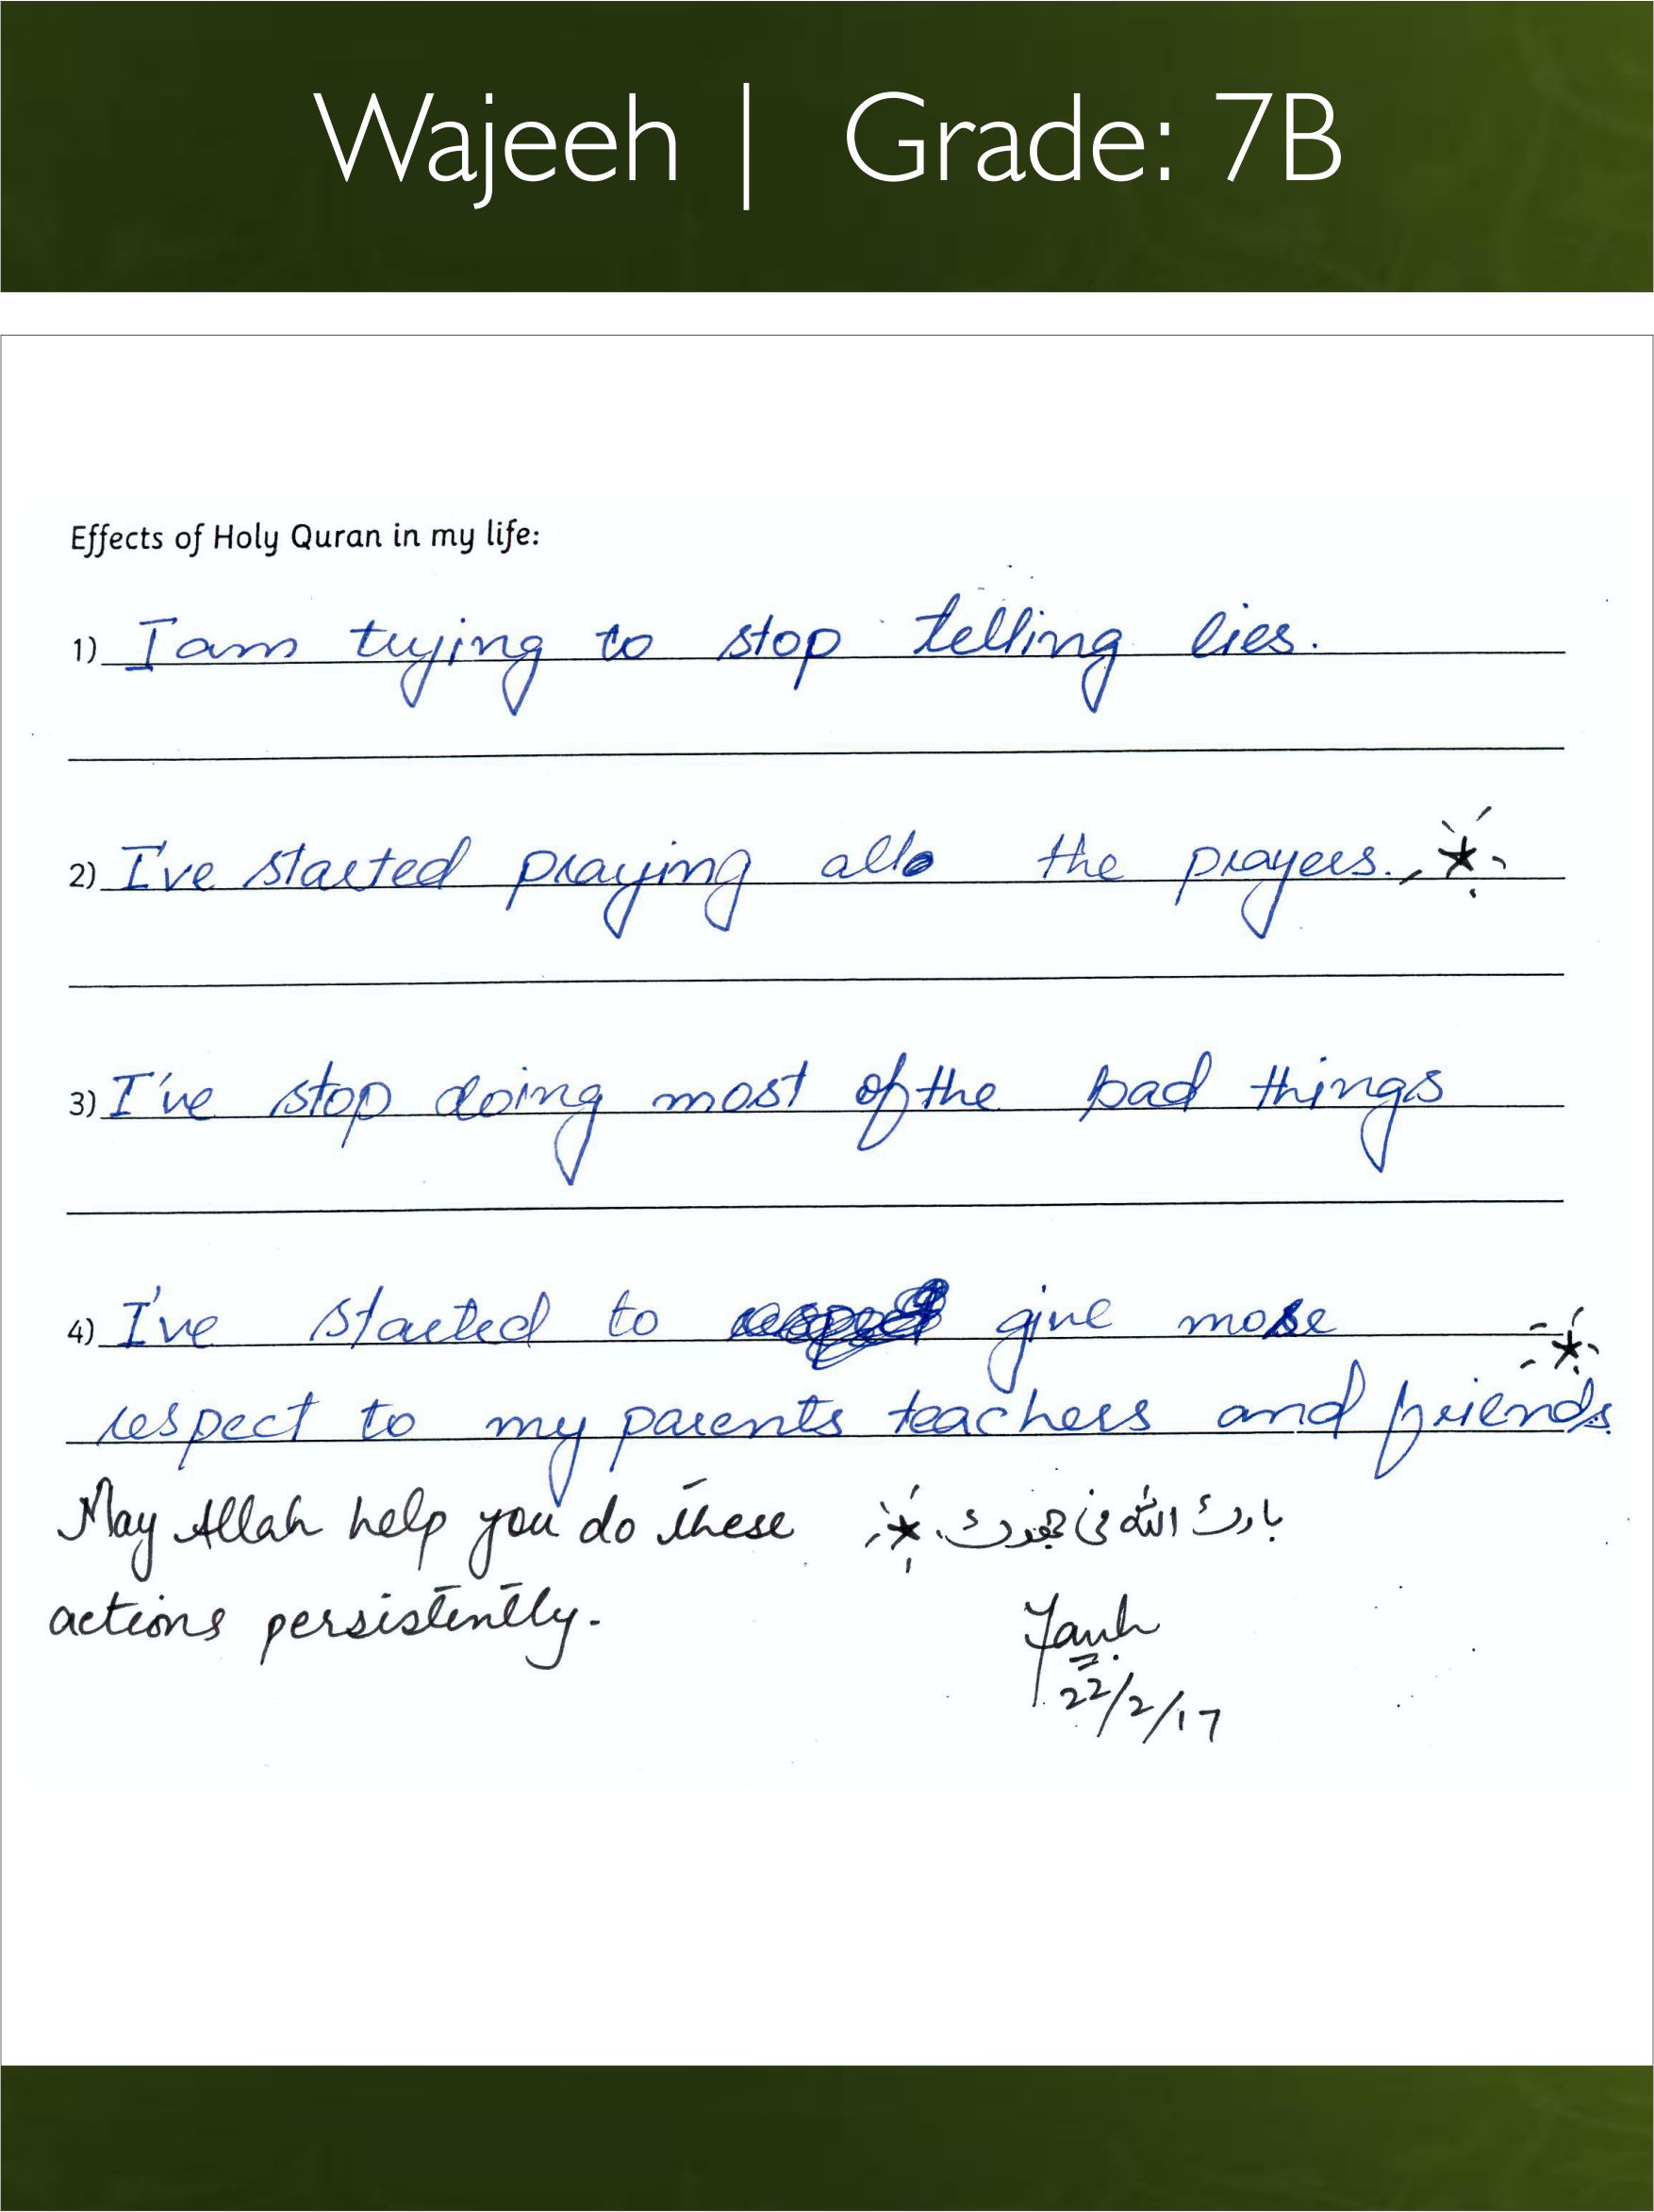 Wajeeh | Grade: 7B
Effects of Holy Quran in my life:
1) I am trying to stop telling lies.
2) I've started praying all the prayers.
3) I've stop doing most of the bad things
4) I've started to give more
respect to my parents teachers and friends.
May Allah help you do these بارك الله في جهودك
actions persistently.
22/2/17